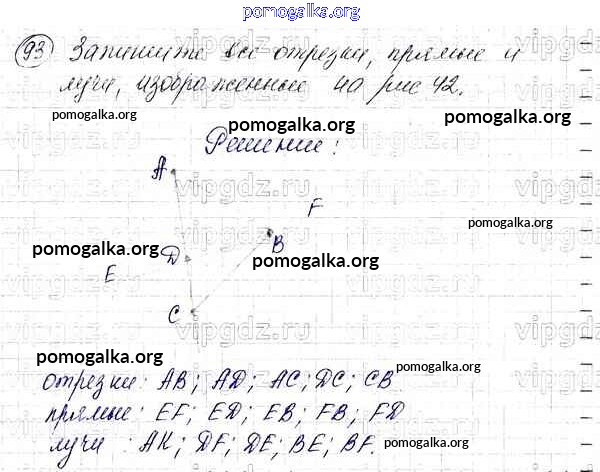 pomogalka.org
93 Запишите все отрезки, прямые и
лучи, изображенные на рис 42.
pomogalka.org pomogalka.org pomogalka.org
Решение:
A
vipgdz.ru vipgdz.ru
F
pomogalka.org
B
pomogalka.org D pomogalka.org
E
C
vipgdz.ru vipgdz.ru
pomogalka.org
отрезки: AB; AD; AC; DC; CB pomogalka.org
прямые: EF; ED; EB; FB; FD
лучи: AK; DF; DE; BE; BF. pomogalka.org
vipgdz.ru vipgdz.ru